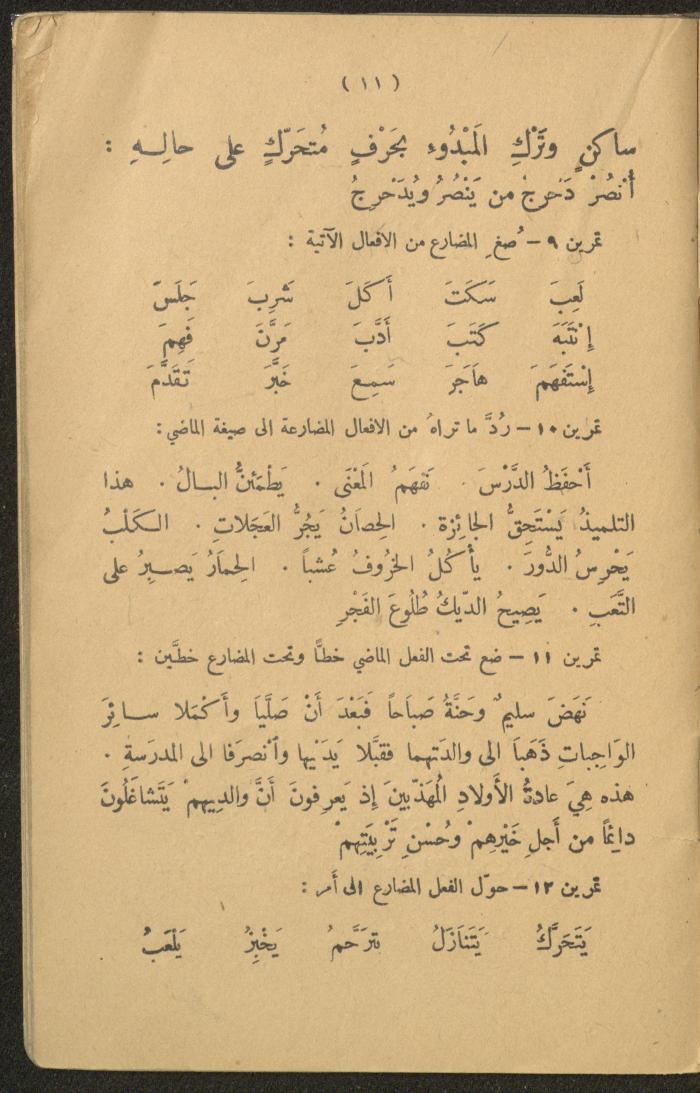 ( ١١ )
ساكنٍ وتَرْكِ المَبْدُوءِ بِحَرْفٍ مُتحَرّكٍ على حالِـهِ :
أُنْصُرْ دَحْرِجْ من يَنْصُرُ ويُدَحْرِجُ
تمرين ٩ – صُغِ المضارع من الافعال الآتية :
لَعِبَ سَكَتَ أَكَلَ شَرِبَ جَلَسَ
إِنْتَبَهَ كَتَبَ أَدَّبَ مَرَّنَ فَهِمَ
إِسْتَفهَمَ هَاَجَرَ سَمِعَ خَبَّرَ تَقَدَّمَ
تمرين ١٠ – رُدَّ ما تراهُ من الافعال المضارعة الى صيغة الماضي :
أَحْفَظُ الدَّرْسَ . نَفهَمُ المَعْنَى . يَطْمَئِنُّ البـالُ . هذا
التلميذُ يَسْتَحِقُّ الجائِزة . الحِصاَنُ يَجُرُّ العَجَلاتِ . الـكَلْبُ
يَحْرِسُ الدُّورَ . يأْكُلُ الخَرُوفُ عُشباً . الحِمَارُ يَصـبِرُ على
التَّعَبِ . يَصِيحُ الدّيكُ طُلُوعَ الفَجْرِ
تمرين ١١ – ضع تحت الفعل الماضي خطًّا وتحت المضارع خطَّين :
نَهَضَ سليمٌ وحَنَّةُ صَباَحاً فَبَعْدَ أَنْ صَلَّياَ وأَكْمَلا سـائِرَ
الوَاجِباتِ ذَهَباَ الى والدَتِهما فقبَّلا يَدَيْها وٱنْصرَفا الى المدرَسةِ .
هذه هِيَ عادةُ الأَولادِ المُهَذّبينَ إِذ يَعرِفونَ أَنَّ والدِيهِمْ يَتَشاغَلُونَ
دائِمًا من أَجلِ خَيْرِهِمْ وحُسْنِ تَرْبِيَتِهِمْ
تمرين ١٢ – حوّل الفعل المضارع الى أَمر :
يَتَحَرَّكُ يَتَنَازَلُ يترَحَّمُ يَخْبِزُ يَلْعَبُ